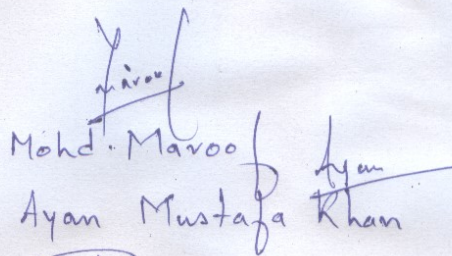 Maroof
Mohd. Maroof
Ayan
Ayan Mustafa Khan